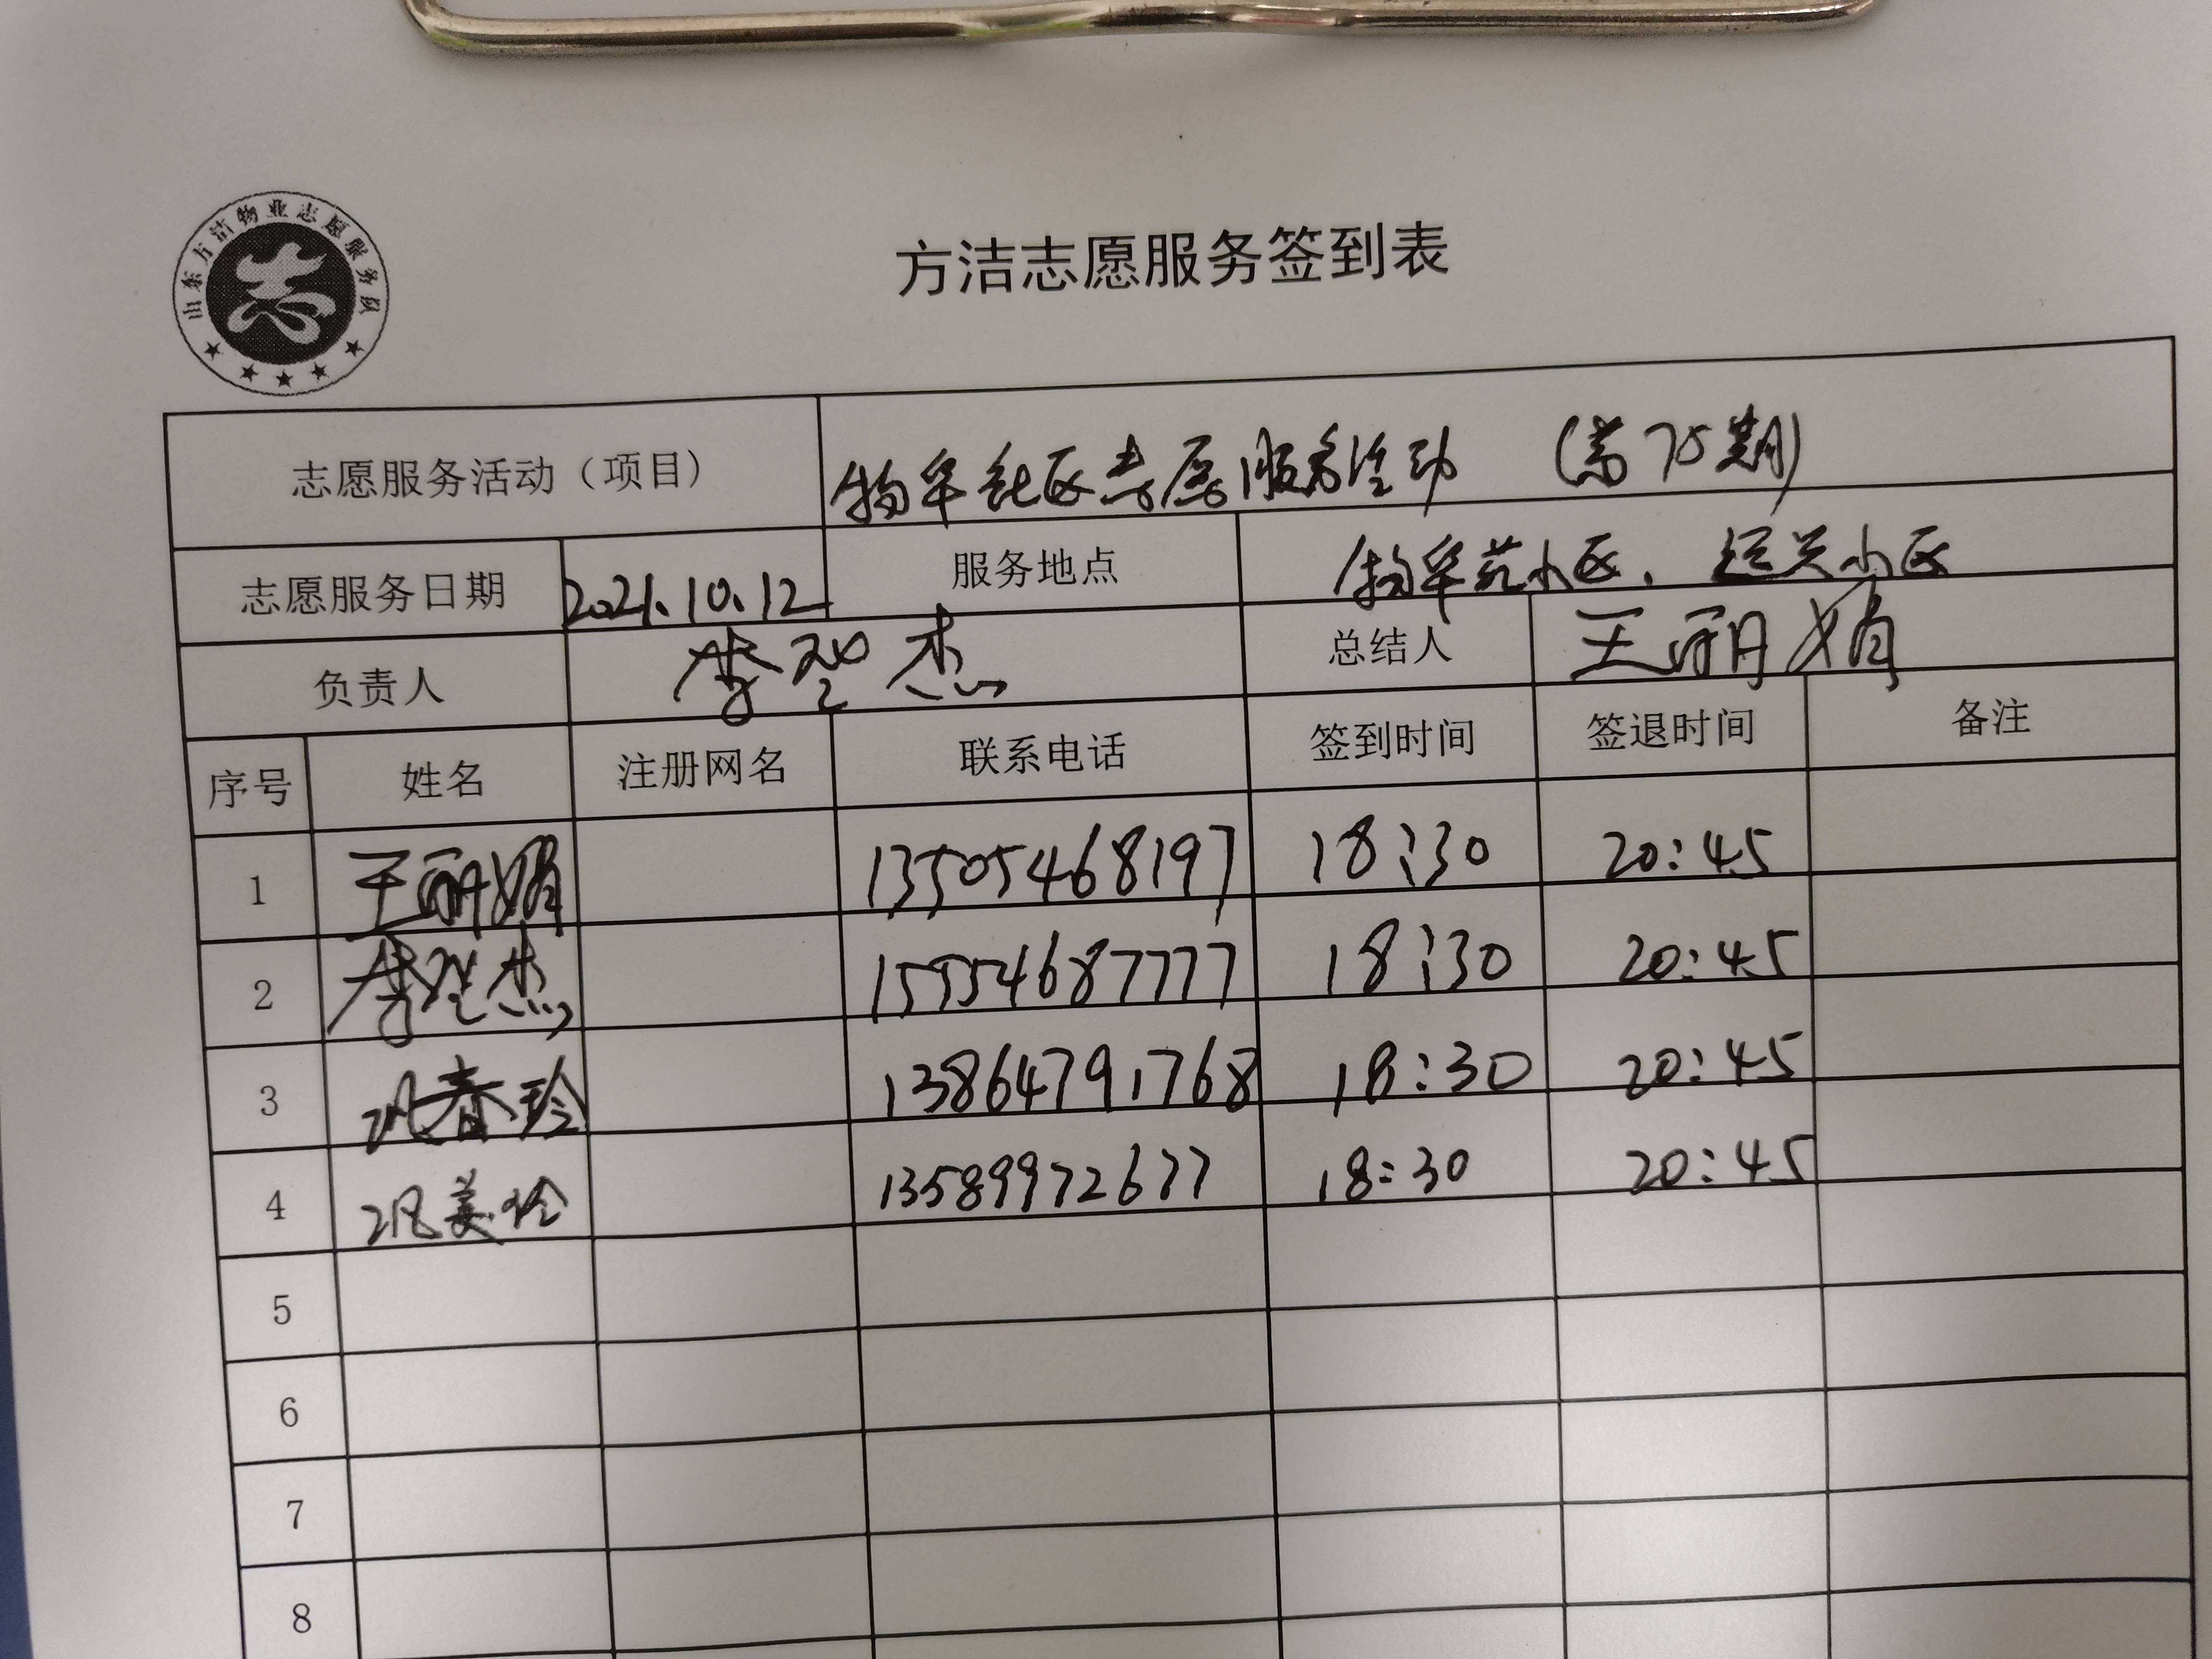 山东方洁物业志愿服务队
方洁志愿服务签到表
志愿服务活动（项目） 物华社区志愿服务活动 （第75期）
志愿服务日期 2021.10.12 服务地点 物华苑小区、运关小区
负责人 李玺杰 总结人 王丽娟
序号 姓名 注册网名 联系电话 签到时间 签退时间 备注
1 王丽娟 13505468197 18:30 20:45
2 李玺杰 15554687777 18:30 20:45
3 春玲 13864791768 18:30 20:45
4 美玲 13589972677 18:30 20:45
5
6
7
8